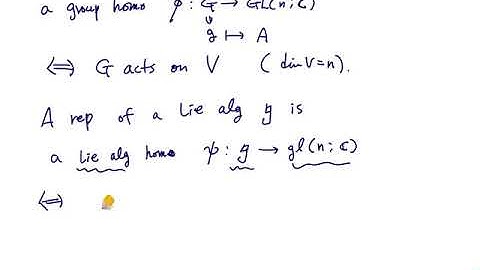 a group homo φ : G → GL(n; ℂ)
g ↦ A
⟺ G acts on V ( dim V = n ).
A rep of a Lie alg 𝔤 is
a Lie alg homo ψ : 𝔤 → gl(n; ℂ)
⟺